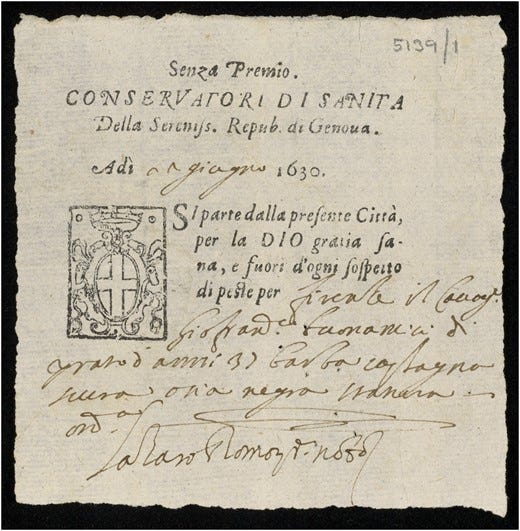 5139/1
Senza Premio.
CONSERVATORI DI SANITA
Della Sereniss. Repub. di Genova.
Adì giugno 1630.
SI parte dalla presente Città,
per la DIO gratia sa-
na, e fuori d'ogni sospetto
di peste per Firenze il
Giofran.co buonamici di
prato d anni 37 barba castagna
scura o sia negra
ord.a